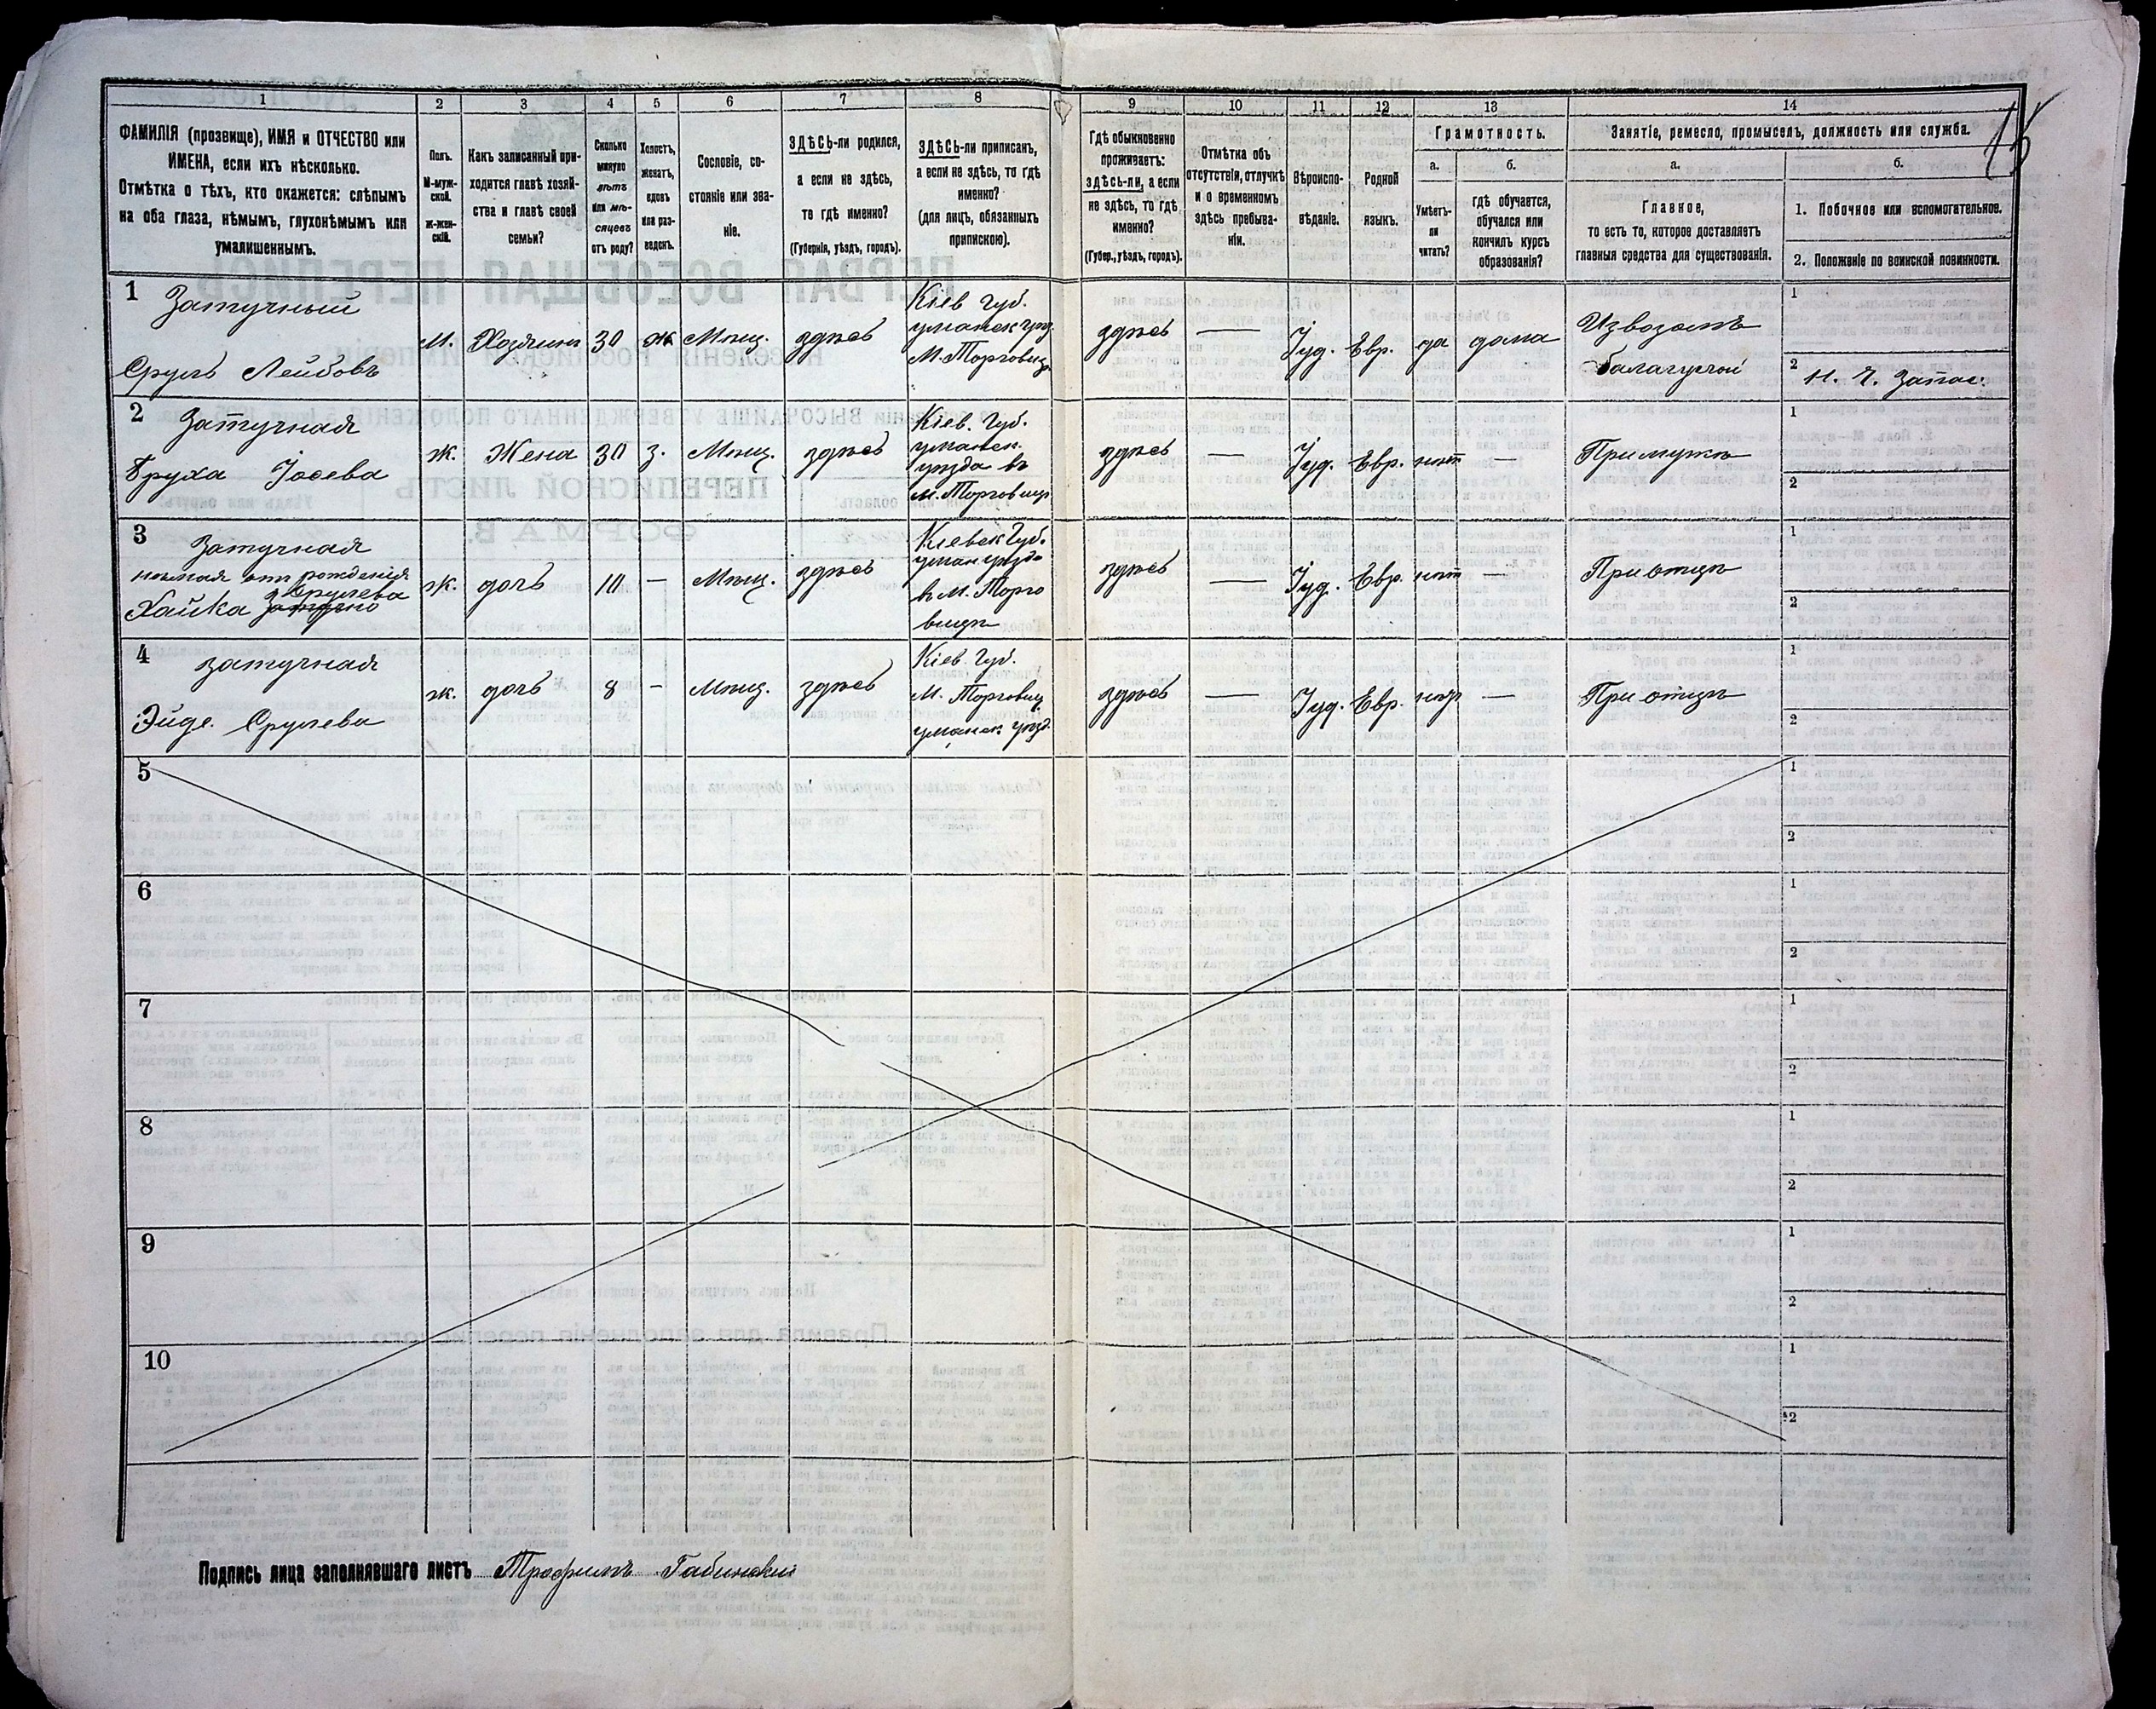 1 2 3 4 5 6 7 8 9 10 11 12 13 14
15
ФАМИЛІЯ (прозвище), ИМЯ и ОТЧЕСТВО или
ИМЕНА, если ихъ нѣсколько.
Отмѣтка о тѣхъ, кто окажется: слѣпымъ
на оба глаза, нѣмымъ, глухонѣмымъ или
умалишеннымъ.
Полъ.
М-муж-
ской.
ж-жен-
скій.
Какъ записанный при-
ходится главѣ хозяй-
ства и главѣ своей
семьи?
Сколько
минуло
лѣтъ
или мѣ-
сяцевъ
отъ роду?
Холостъ,
женатъ,
вдовъ
или раз-
веденъ.
Сословіе, со-
стояніе или зва-
ніе.
ЗДѢСЬ-ли родился,
а если не здѣсь,
то гдѣ именно?
(Губернія, уѣздъ, городъ).
ЗДѢСЬ-ли приписанъ,
а если не здѣсь, то гдѣ
именно?
(для лицъ, обязанныхъ
припискою).
Гдѣ обыкновенно
проживаетъ:
здѣсь-ли, а если
не здѣсь, то гдѣ
именно?
(Губер., уѣздъ, городъ).
Отмѣтка объ
отсутствіи, отлучкѣ
и о временномъ
здѣсь пребыва-
ніи.
Вѣроиспо-
вѣданіе.
Родной
языкъ.
Грамотность.
а. б.
Умѣетъ-
ли
читать?
гдѣ обучается,
обучался или
кончилъ курсъ
образованія?
Занятіе, ремесло, промыселъ, должность или служба.
а. б.
Главное,
то есть то, которое доставляетъ
главныя средства для существованія.
1. Побочное или вспомогательное.
2. Положеніе по воинской повинности.
1 Затучный
Сруль Лейбовъ
м. Хозяинъ 30 ж Мѣщ. здѣсь
Кіев Губ.
уманск уѣз.
М. Торговиц.
здѣсь — Іуд. Евр. да дома
Извозомъ
балагулой
1
2 н. ч. запас.
2 Затучная
Бруха Іосева
ж. Жена 30 з. Мѣщ. здѣсь
Кіев. Губ.
уманск.
уѣзда въ
м. Торговиц
здѣсь — Іуд. Евр. нѣт —
При мужѣ
1
2
3 Затучная
нѣмая отъ рожденія
Срулева
Хайка
ж. дочь 10 — Мѣщ. здѣсь
Кіевск Губ.
уман уѣзда
в М. Торго
вицѣ
здѣсь — Іуд. Евр. нѣт —
При отцѣ
1
2
4 затучная
Эйде. Срулева
ж. дочь 8 — Мѣщ. здѣсь
Кіев. Губ.
М. Торговиц
уманск уѣзд.
здѣсь — Іуд. Евр. —
При отцѣ
1
2
5
1
2
6
1
2
7
1
2
8
1
2
9
1
2
10
1
2
Подпись лица заполнявшаго листъ Трофимъ Габинскій